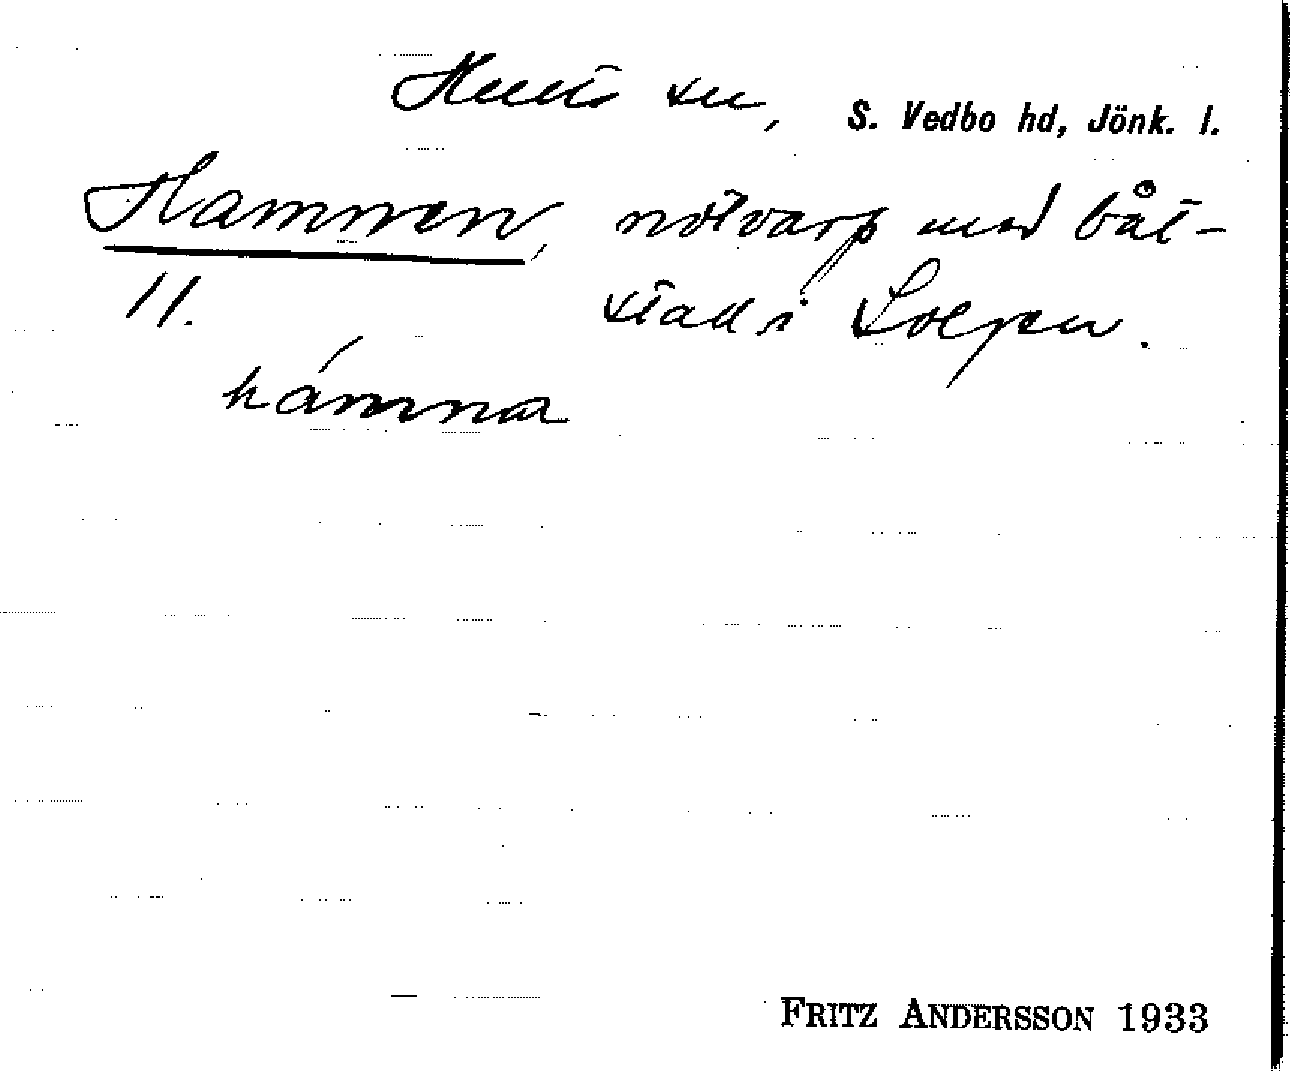 Hults sn, S. Vedbo hd, Jönk. l.
Hamnen, notvarp med båt-
11. stad i Solgen.
hámna
FRITZ ANDERSSON 1933